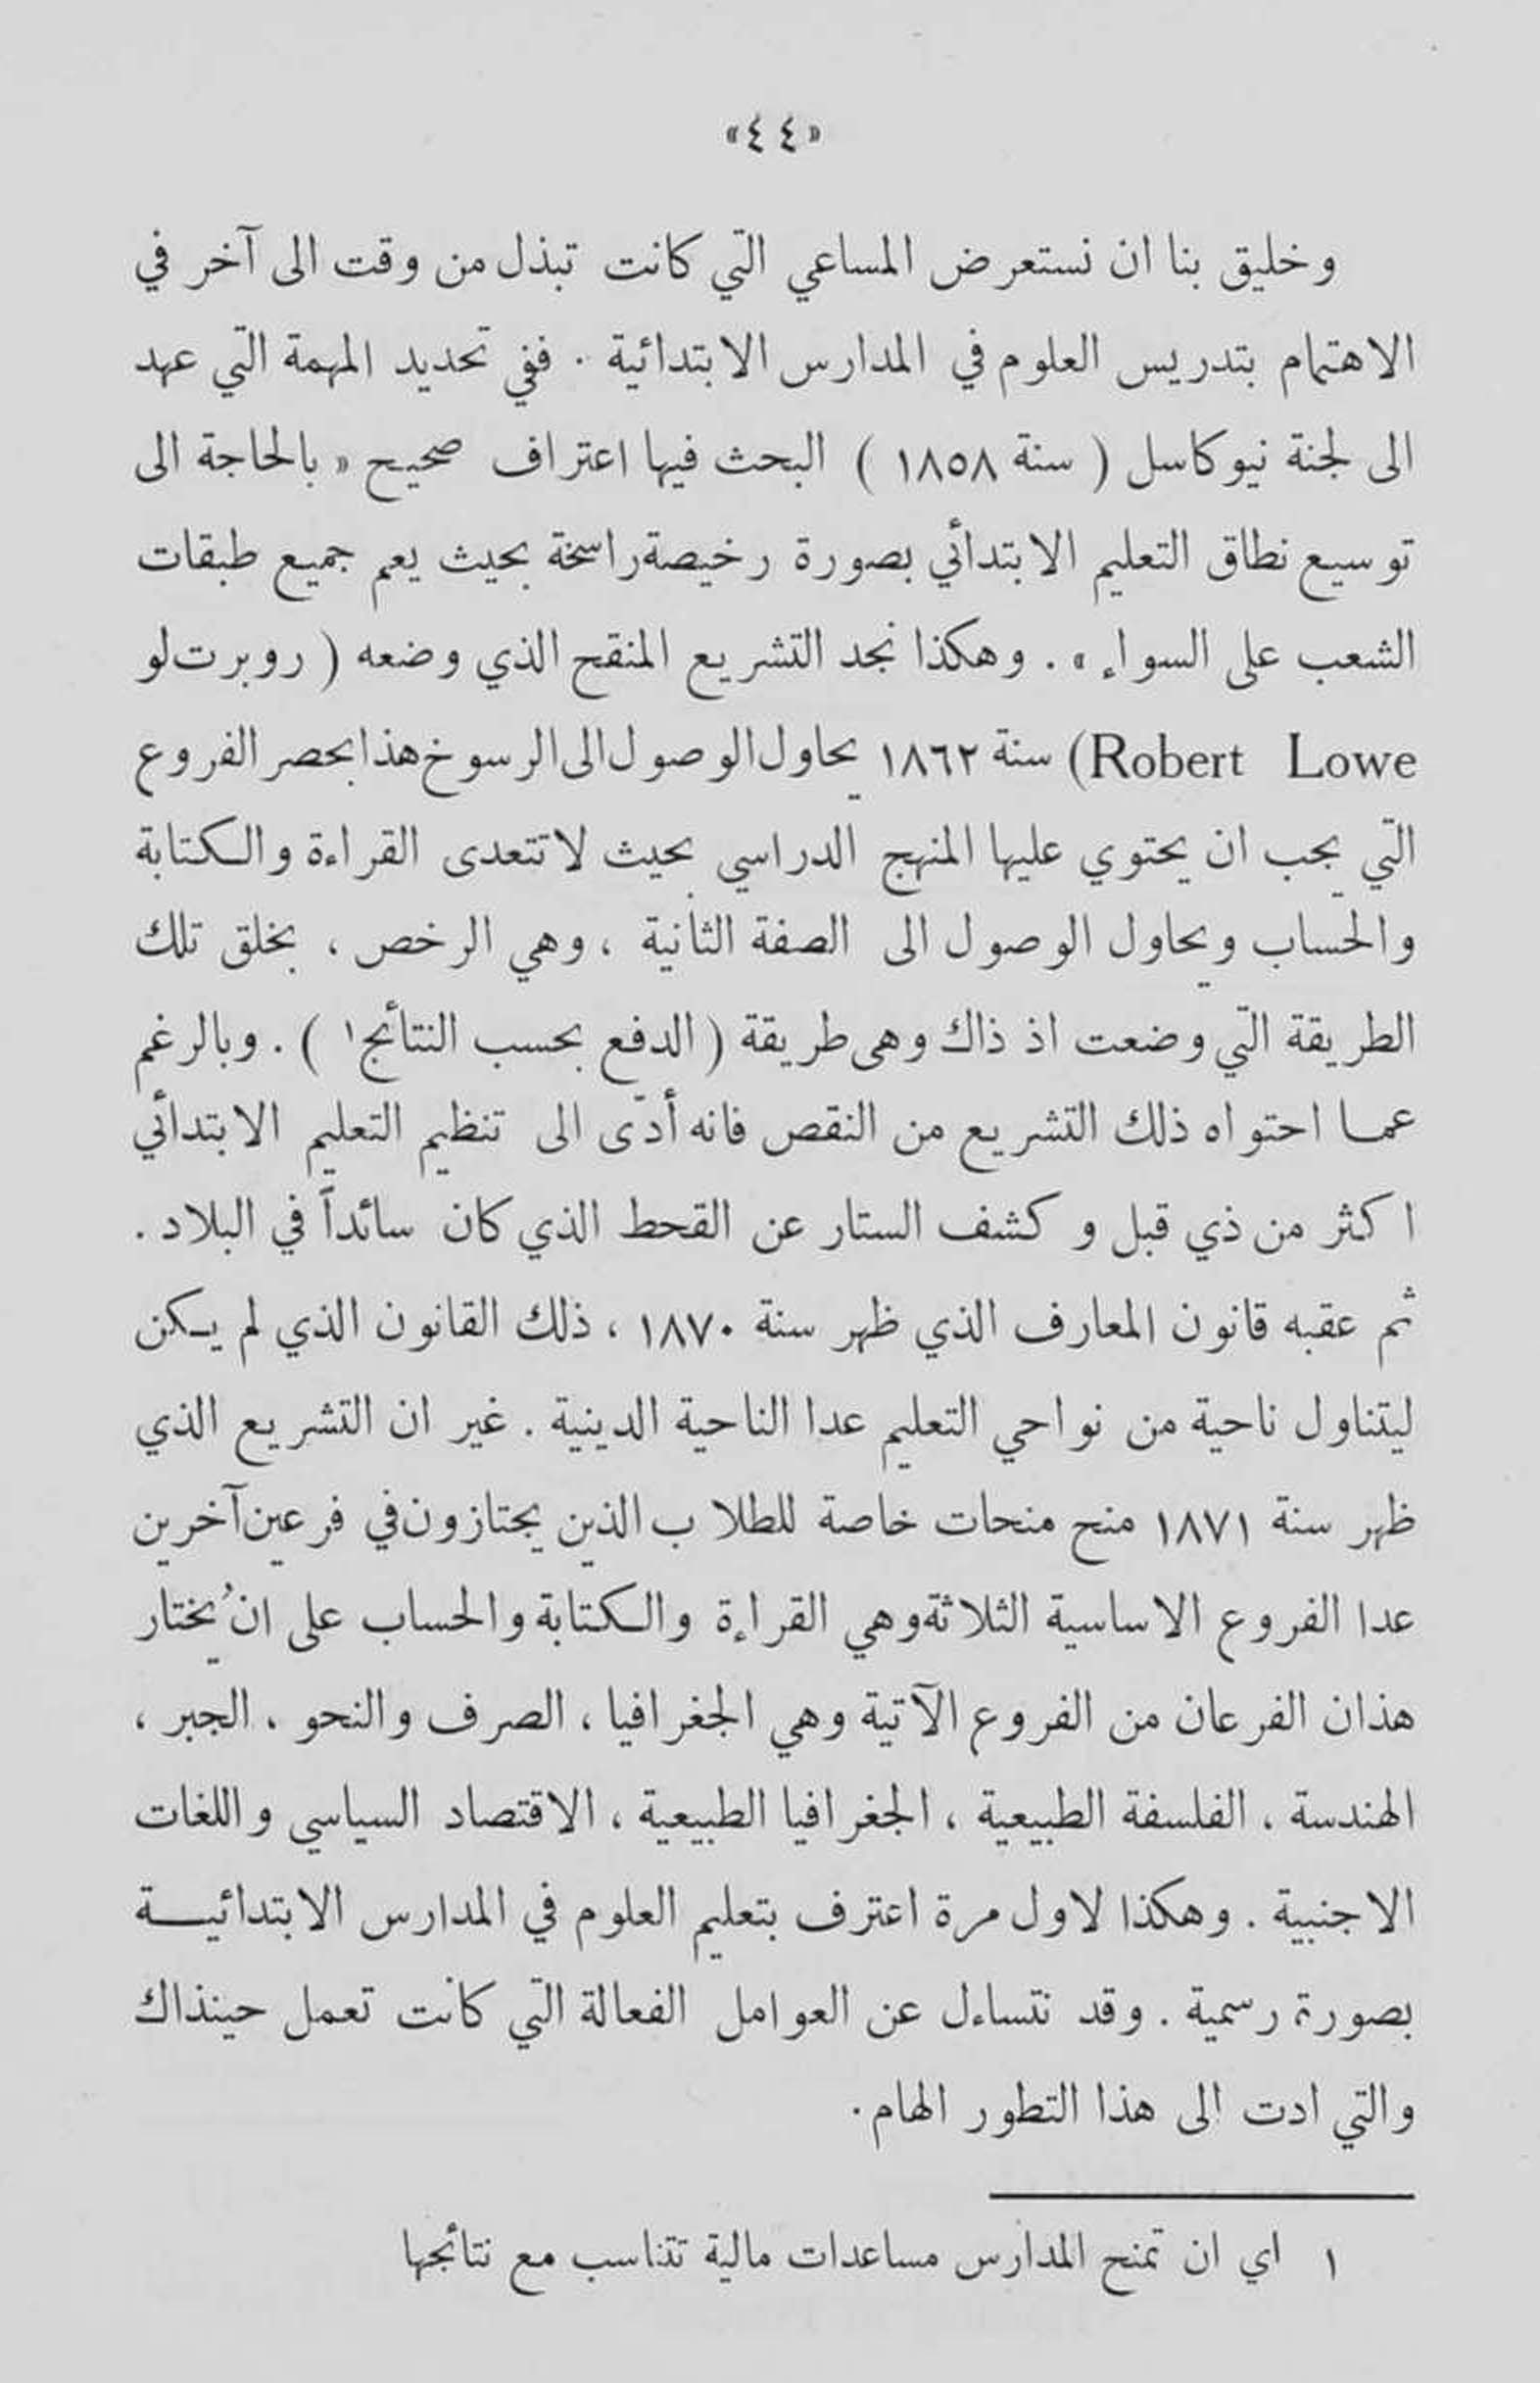 «٤٤»
وخليق بنا ان نستعرض المساعي التي كانت تبذل من وقت الى آخر في
الاهتمام بتدريس العلوم في المدارس الابتدائية . ففي تحديد المهمة التي عهد
الى لجنة نيوكاسل ( سنة ١٨٥٨ ) البحث فيها اعتراف صحيح « بالحاجة الى
توسيع نطاق التعليم الابتدائي بصورة رخيصة راسخة بحيث يعم جميع طبقات
الشعب على السواء » . وهكذا نجد التشريع المنقح الذي وضعه ( روبرت لو
Robert Lowe) سنة ١٨٦٢ يحاول الوصول الى الرسوخ هذا بحصر الفروع
التي يجب ان يحتوي عليها المنهج الدراسي بحيث لا تتعدى القراءة والكتابة
والحساب ويحاول الوصول الى الصفة الثانية ، وهي الرخص ، بخلق تلك
الطريقة التي وضعت اذ ذاك وهى طريقة ( الدفع بحسب النتائج١ ) . وبالرغم
عما احتواه ذلك التشريع من النقص فانه أدّى الى تنظيم التعليم الابتدائي
اكثر من ذي قبل وكشف الستار عن القحط الذي كان سائداً في البلاد .
ثم عقبه قانون المعارف الذي ظهر سنة ١٨٧٠ ، ذلك القانون الذي لم يكن
ليتناول ناحية من نواحي التعليم عدا الناحية الدينية . غير ان التشريع الذي
ظهر سنة ١٨٧١ منح منحات خاصة للطلاب الذين يجتازون في فرعين آخرين
عدا الفروع الاساسية الثلاثة وهي القراءة والكتابة والحساب على ان يُختار
هذان الفرعان من الفروع الآتية وهي الجغرافيا ، الصرف والنحو ، الجبر ،
الهندسة ، الفلسفة الطبيعية ، الجغرافيا الطبيعية ، الاقتصاد السياسي واللغات
الاجنبية . وهكذا لاول مرة اعترف بتعليم العلوم في المدارس الابتدائيــة
بصورة رسمية . وقد نتساءل عن العوامل الفعالة التي كانت تعمل حينذاك
والتي ادت الى هذا التطور الهام .
١ اي ان تمنح المدارس مساعدات مالية تتناسب مع نتائجها